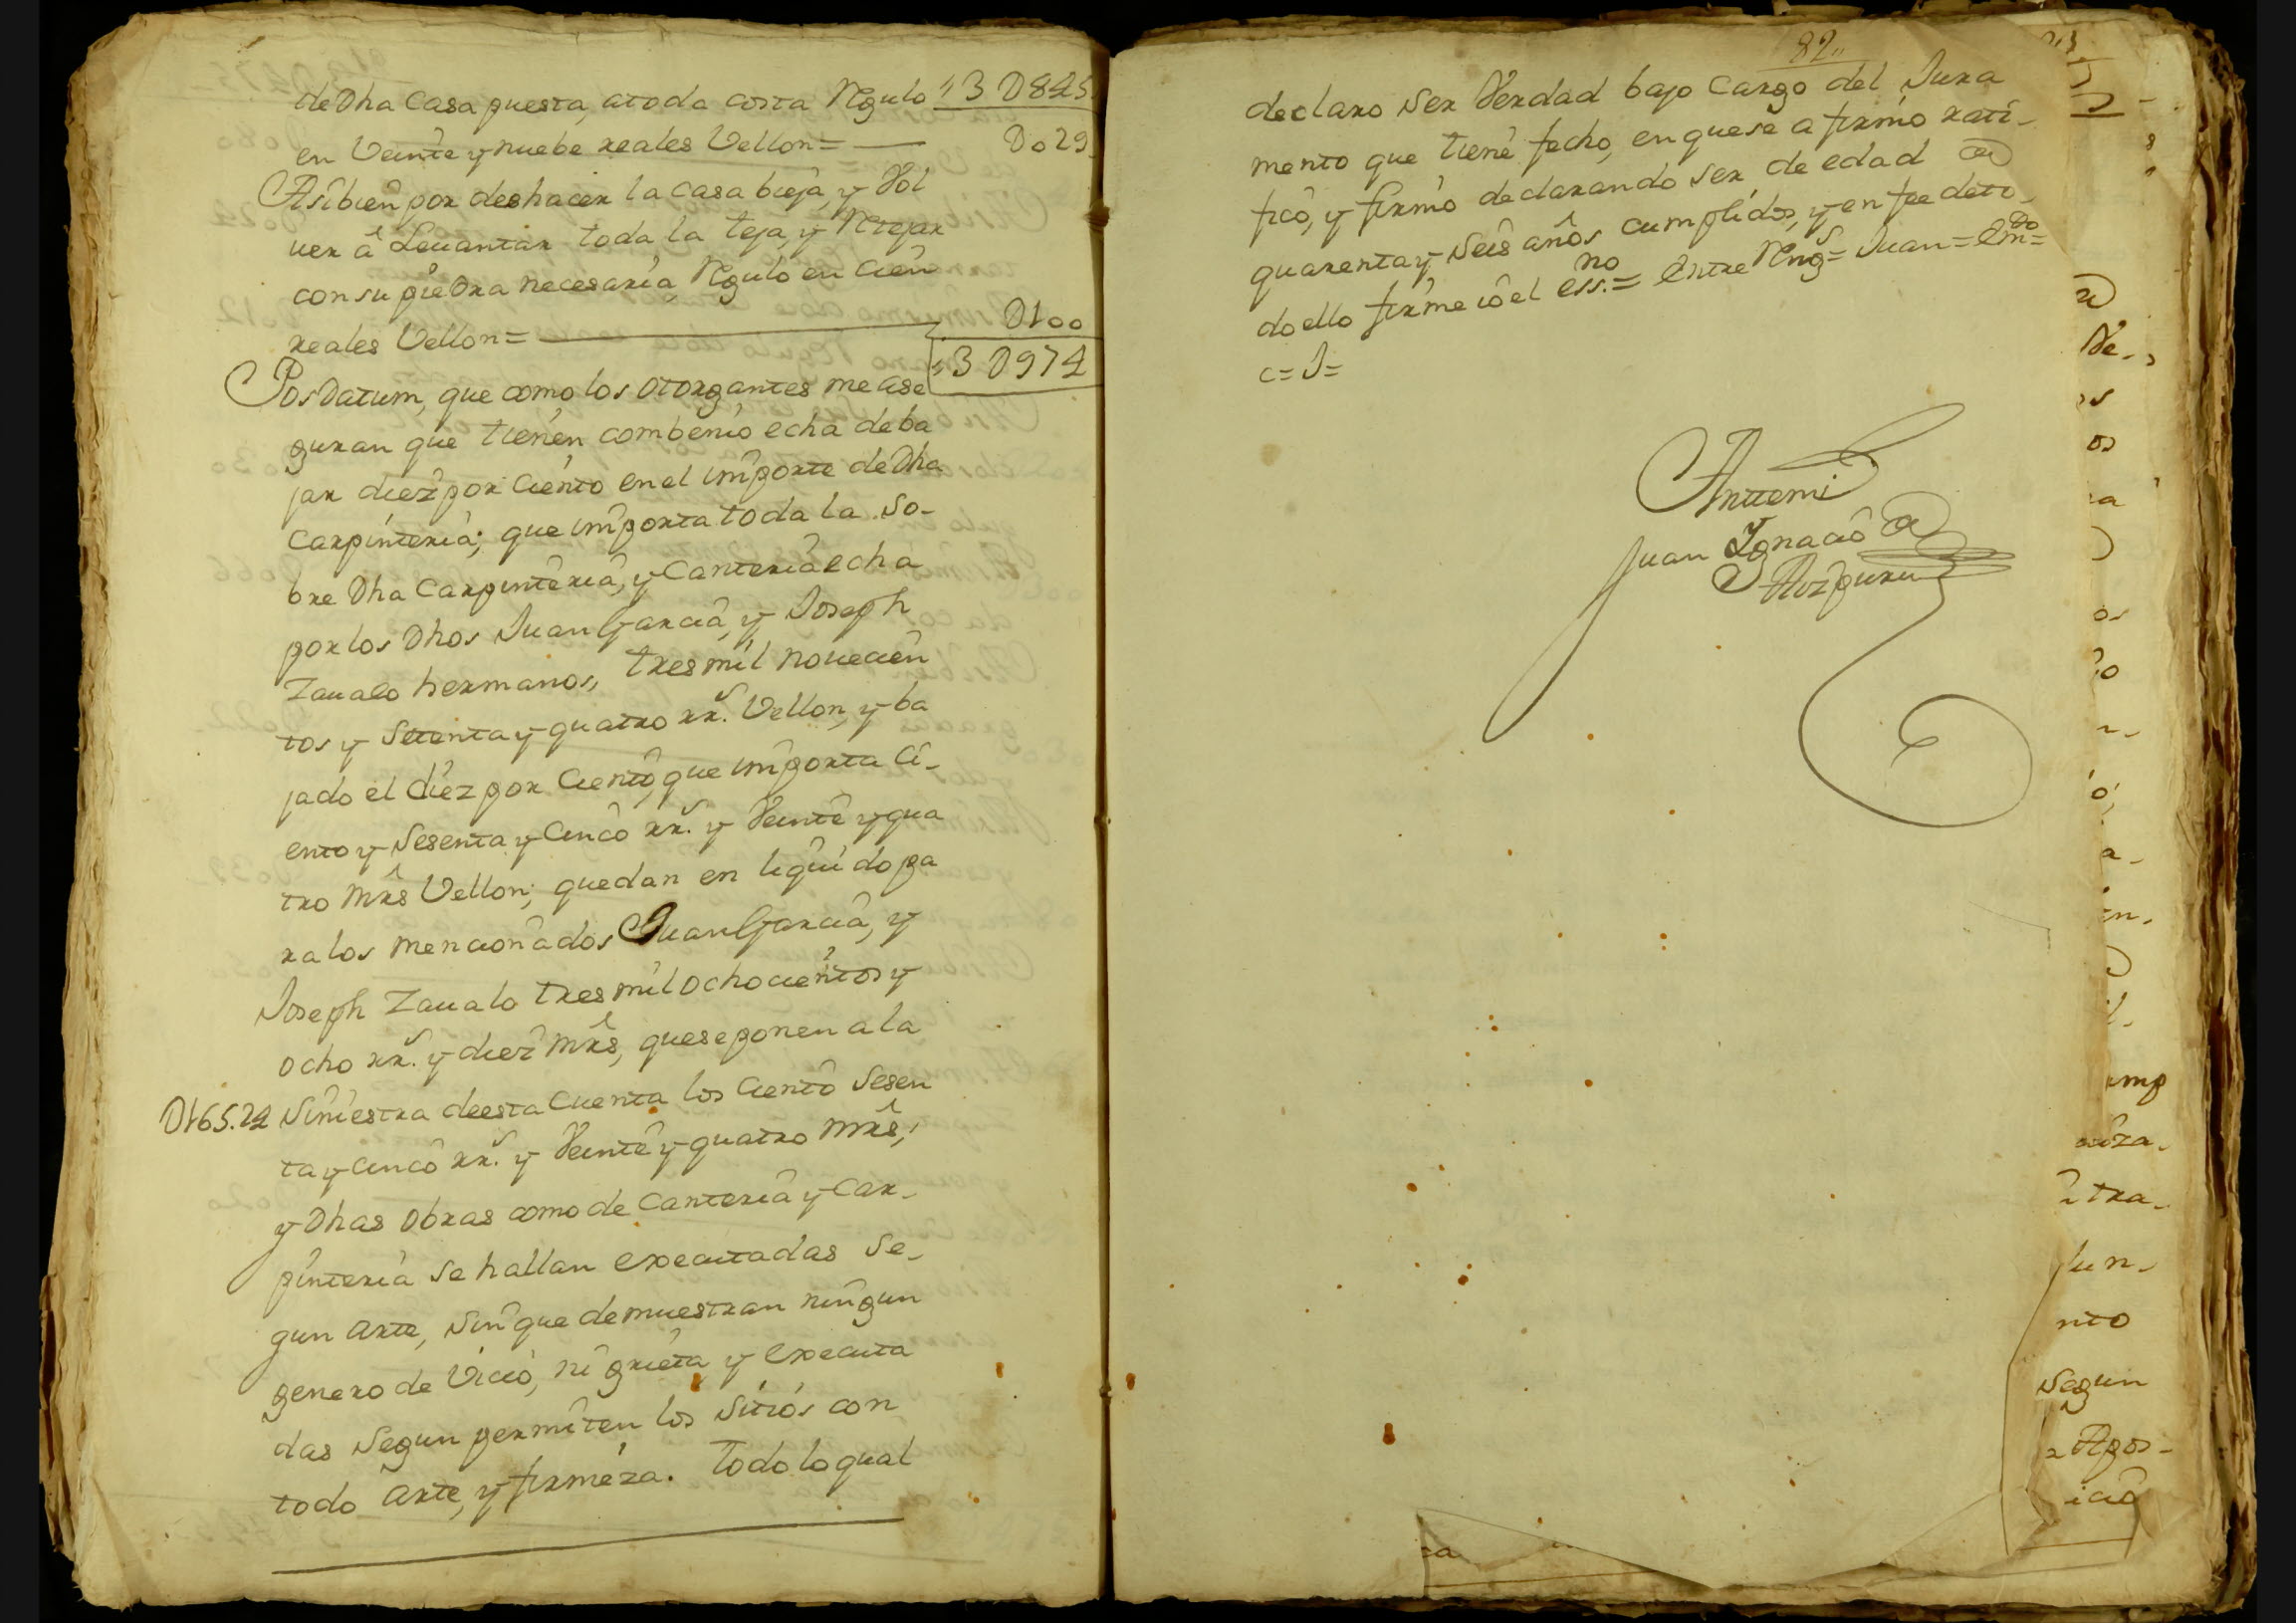 de Dha Casa puesta, atoda costa Regulo "3 D845.
en Veinte y nuebe reales Vellon= — Do29.
Asibien por deshacer la casa bieja, y Vol
uer â Leuantar toda la teja, y Retejar
con su piedra necesaria, Regulo en cien
reales Vellon= — D100
"3 D974
Posdatum, que como los otorgantes me ase
guran que tienen combenio echa de ba
jar diez por ciento en el importe de Dha
Carpinteria; que importa toda la so-
bre Dha Carpinteria, y Canteria echa
por los Dhos Juan Garcia, y Joseph
Zaualo hermanos, tres mil nouecien
tos y Setenta y quatro rr.s Vellon, y ba
jado el diez por Ciento, que importa Ci-
ento y Sesenta y Cinco rr.s y Veinte y qua
tro mrs Vellon; quedan en liquido pa
ra los mencionados Juan Garcia, y
Joseph Zaualo tres mil ochocientos y
ocho rr.s y diez mrs, que se ponen a la
D165.24 Siniestra de esta Cuenta los Ciento Sesen
ta y Cinco rr.s y Veinte y quatro mrs;
y Dhas Obras como de Canteria y Car-
pinteria se hallan executadas se-
gun arte, sin que demuestran ningun
genero de Vicio, ni grieta, y executa
das Segun permiten los Sitios con
todo arte, y firmeza. Todo lo qual
82"
declaro ser Verdad bajo Cargo del Jura
mento que tiene fecho, en que se afirmo rati-
ficò, y firmò declarando ser de edad de
quarenta y Seis años cumplidos, y en fee de to-
do ello firme io el ess.no= Entre Rengs= Juan= Emdo=
c= J=
Antemi
Juan Ignacio de
Aizpuru
Ve-
os
os
ra
os
a-
in-
amp
tra-
nto
Segun
Apos-